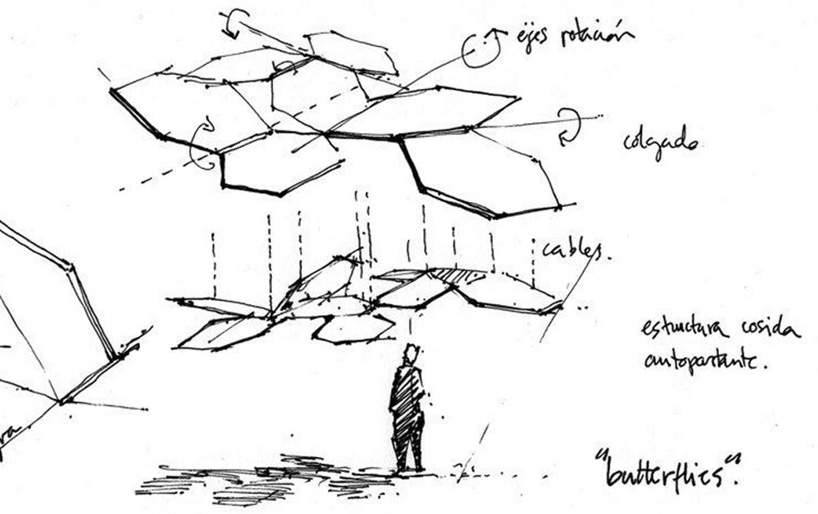 ejes rotación
colgado
cables.
estructura cosida
autoportante.
"butterflies".